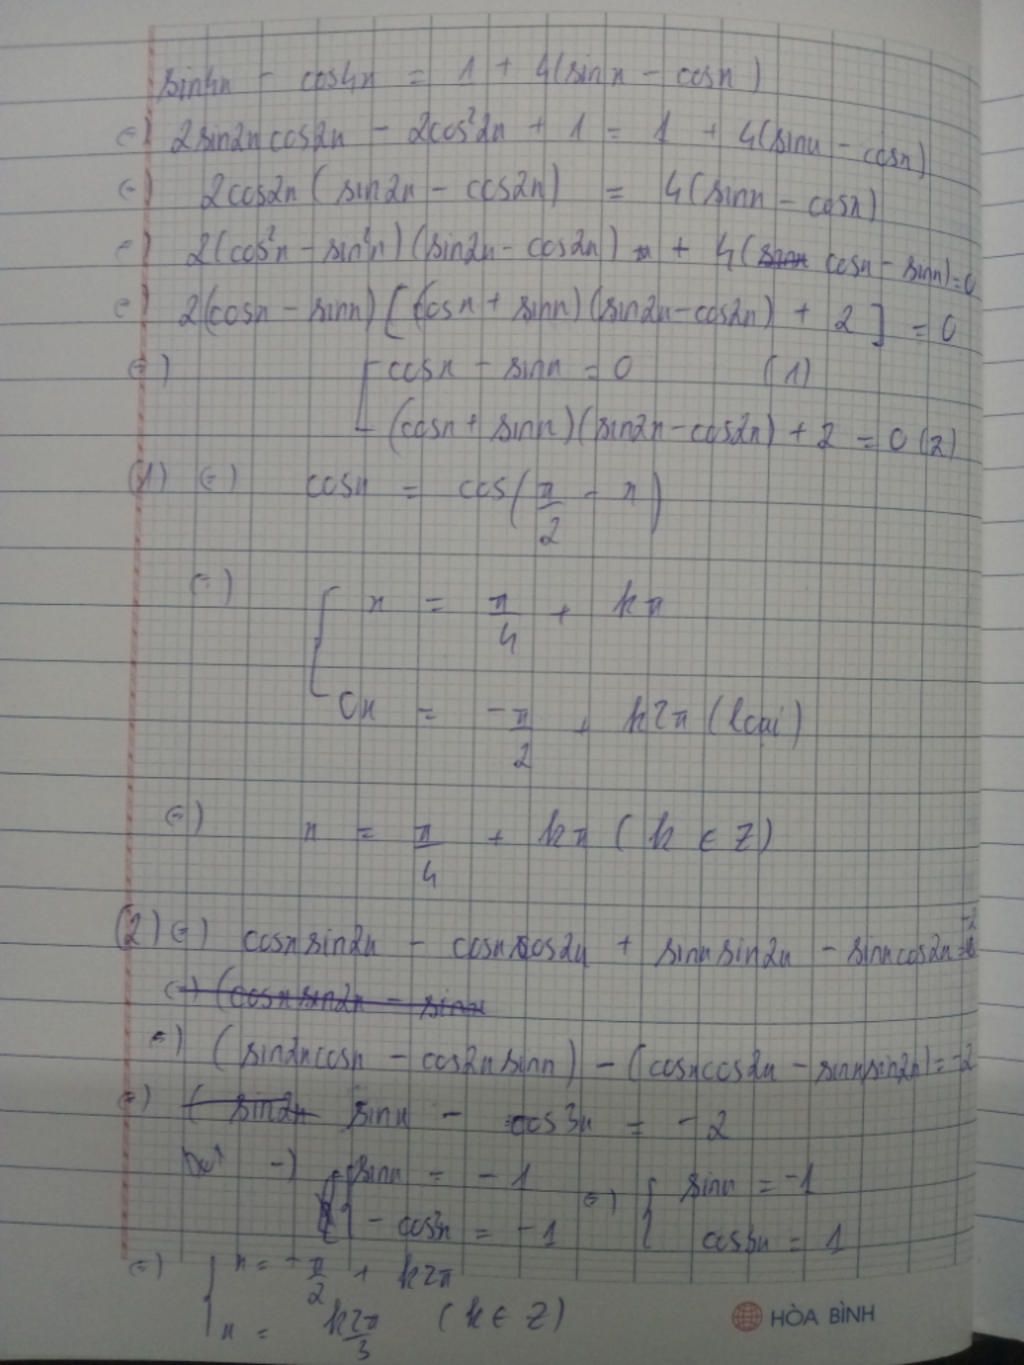 sin4x - cos4x = 1 + 4(sinx - cosx)
(=) 2sin2xcos2x - 2cos²2x + 1 = 1 + 4(sinx - cosx)
(=) 2cos2x (sin2x - cos2x) = 4(sinx - cosx)
(=) 2(cos²x - sin²x)(sin2x - cos2x) + 4( cosx - sinx)=0
(=) 2(cosx - sinx)[(cosx + sinx)(sin2x - cos2x) + 2] = 0
(=) [ cosx - sinx = 0 (1)
(cosx + sinx)(sin2x - cos2x) + 2 = 0 (2)
(1) (=) cosx = cos(π/2 - x)
(=) [ x = π/4 + kπ
0x = -π/2 + k2π (loại)
(=) x = π/4 + kπ ( k ∈ Z)
(2) (=) cosxsin2x - cosxcos2x + sinxsin2x - sinxcos2x = -2
(=) (cosxsin2x - sinx
(=) (sin2xcosx - cos2xsinx) - (cosxcos2x - sinxsin2x) = -2
(=) ( sin2x sinx - cos3x = -2
-) { sinx = -1 (=) { sinx = -1
- cos3x = -1 cos3x = 1
(=) { x = -π/2 + k2π
x = k2π/3 (k ∈ Z)
HÒA BÌNH